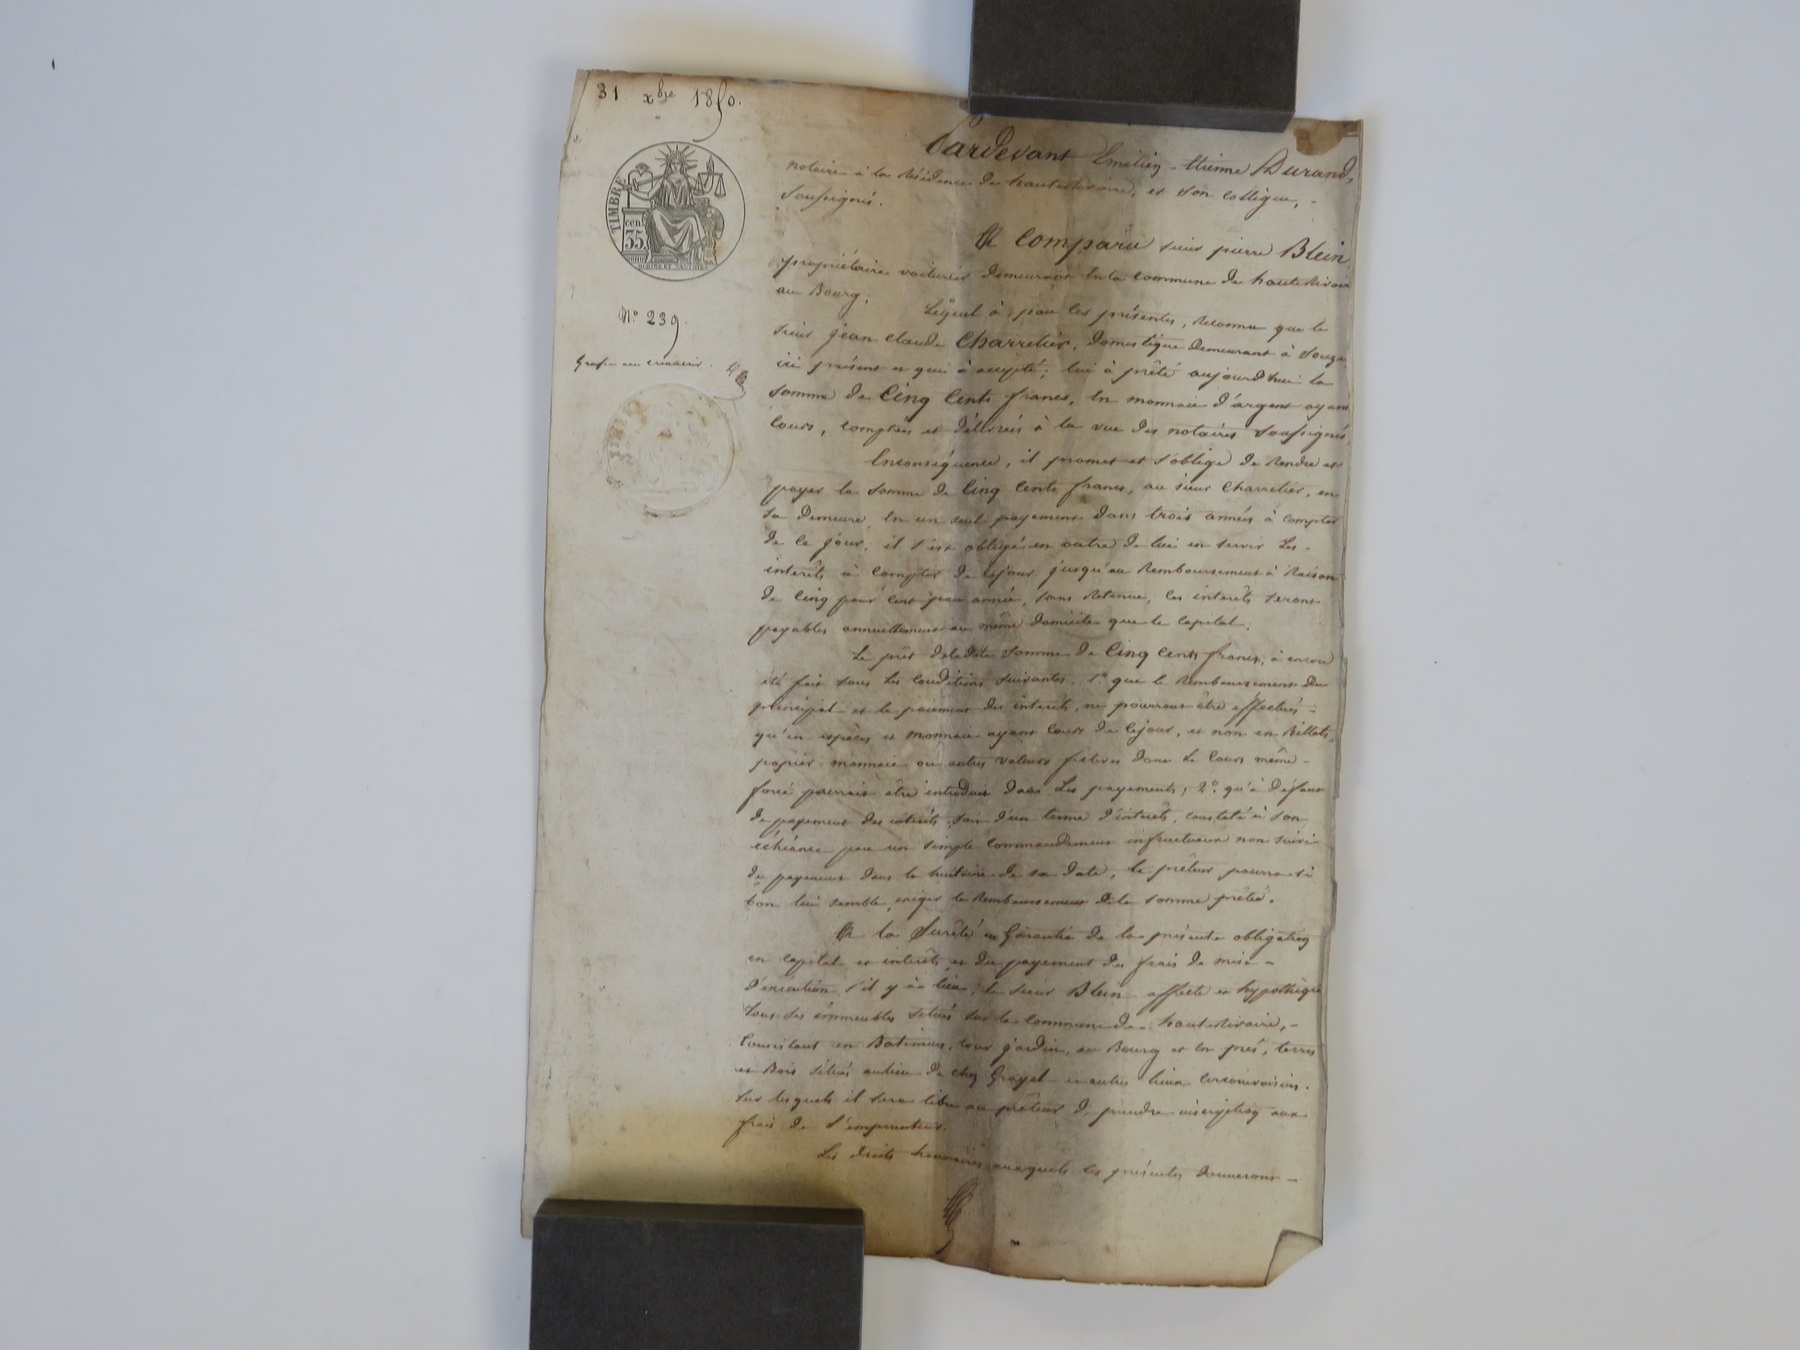 31 xbre 1850.
TIMBRE
cen. 35.
N° 239.
Pardevant Emilien-Etienne Durand,
notaire à la résidence de hauterivoire, et son collègue,
soussignés.
A comparu sieur pierre Blein
propriétaire voiturier demeurant en la commune de hauterivoire
au Bourg.
Lequel à par ces présentes, reconnu que le
sieur jean claude Charretier, domestique demeurant à
ici présent et qui à accepté; lui à prêté aujourd'hui la
somme de Cinq Cents francs, en monnaie d'argent ayant
cours, comptées et délivrées à la vue des notaires soussignés.
Enconséquence, il promet et s'oblige de rendre et
payer la somme de Cinq Cents francs, au sieur Charretier, en
sa demeure, en un seul payement dans trois années à compter
de ce jour; il s'est obligé en outre de lui en servir les
intérêts à compter de cejour jusqu'au remboursement à raison
de cinq pour cent par année, sans retenue, ces intérêts seront
payables annuellement au même domicile que le capital.
Le prêt deladite somme de Cinq Cents francs, à encore
été fait sous les conditions suivantes, 1° que le remboursement du
principal et le paiement des intérêts, ne pourront être effectués
qu'en espèces et monnaie ayant cours de cejour, et non en Billets,
papier monnaie ou autres valeurs fictives dont le cours même
forcé pourrait être introduit dans les payements; 2° qu'à défaut
de payement des intérêts, soit d'un terme d'intérêts, constaté à son
échéance par un simple commandement infructueux non suivi
du payement dans la huitaine de sa date, le prêteur pourra si
bon lui semble, exiger le remboursement dela somme prêtée.
A la Sureté et Garantie de la présente obligation
en capital et intérêts, et du payement des frais de mise
d'exécution s'il y à lieu, le sieur Blein affecte et hypothèque
tous ses immeubles situés sur la commune de hauterivoire,
Consistant en Batiments, cour, jardin, au Bourg et en pré, terres
et Bois situés aulieu de chez Grayel et autres lieux circonvoisins.
sur lesquels il sera libre au prêteur de prendre inscription aux
frais de l'emprunteur.
Les droits honoraires auxquels les présentes donneront